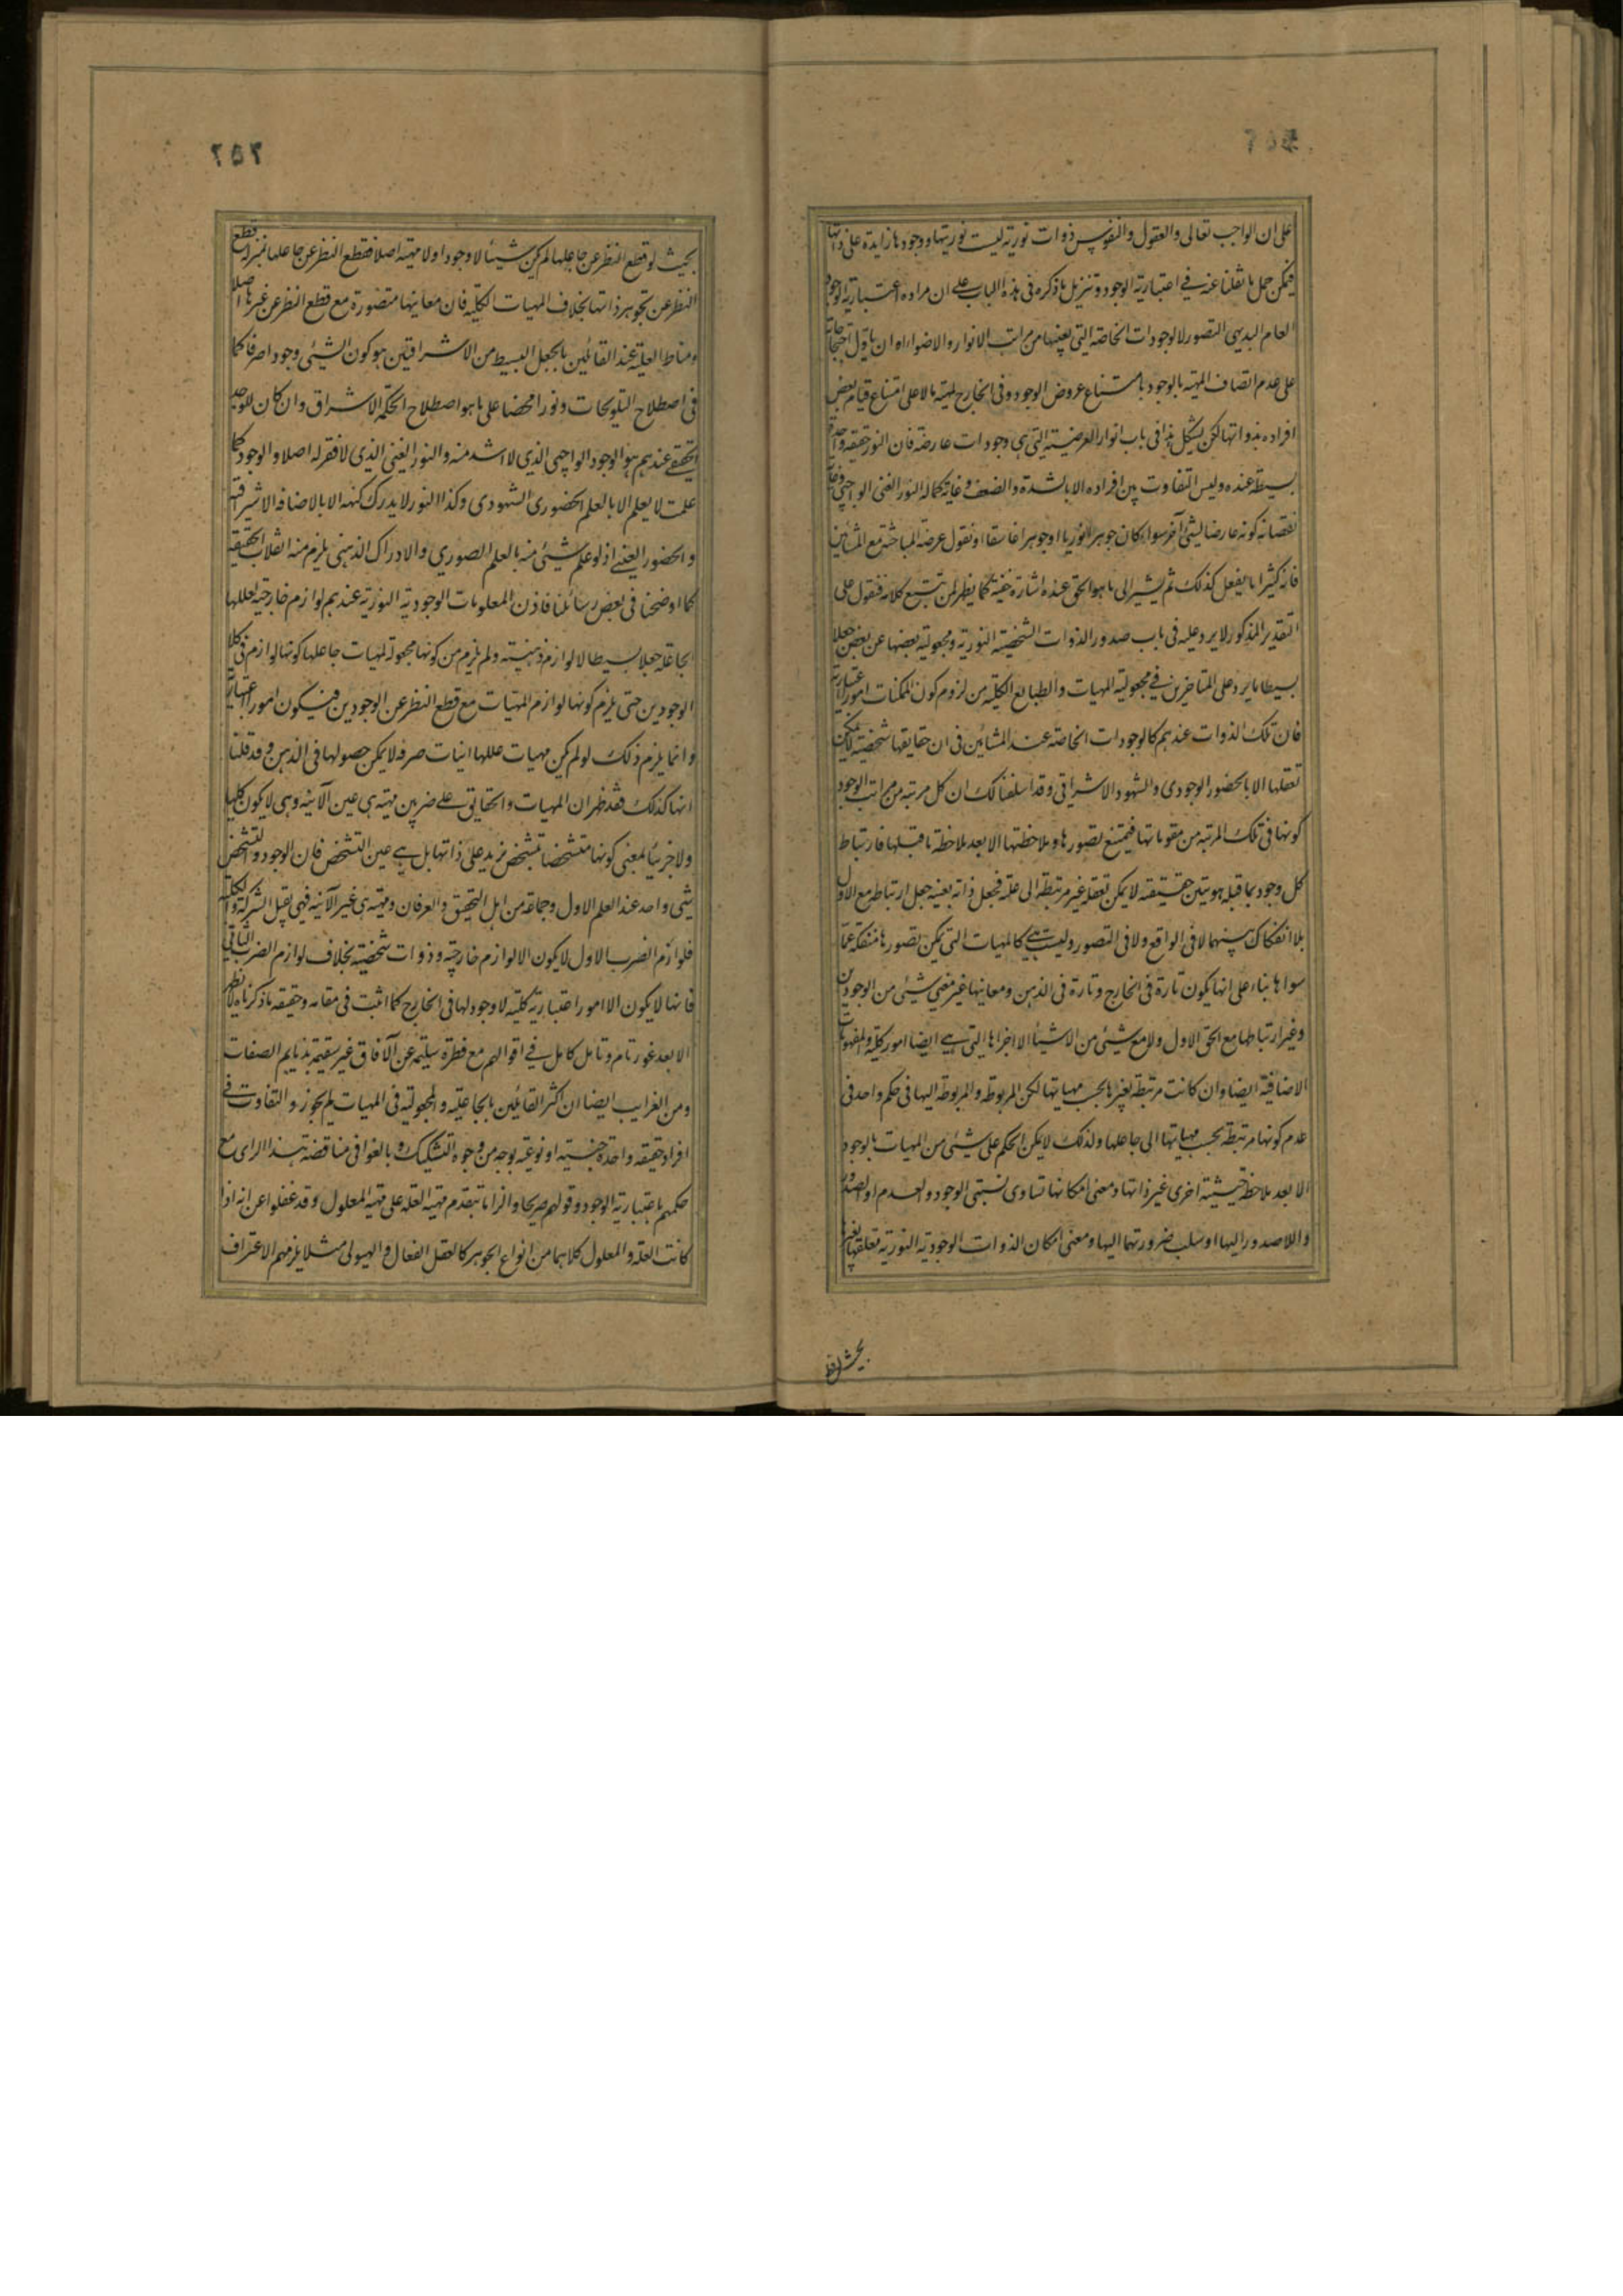 على ان الواجب تعالى والعقول والنفوس ذوات نورية ليست نوريتها ووجودها زايدة على ذاتها
فيمكن حمل ما نقلنا عنه في اعتبارية الوجود وتنزيل ما ذكره فى هذه الباب على ان مراده اعتبارية الوجود
العام البديهى التصور لا الوجودات الخاصة التى بعضها من مراتب الانوار والاضواء او ان ياول احتجاجاته
على عدم اتصاف المهية بالوجود بامتناع عروض الوجود فى الخارج لمهية ما لا على امتناع قيام بعض
افراده بذواتها لكن يشكل هذا فى باب انوار العرضية التى هى وجودات عارضة فان النور حقيقة واحدة
بسيطة عنده وليس التفاوت بين افراده الا بالشدة والضعف وغاية كماله النور الغنى الواجبى وغاية
نقصانه كونه عارضا لشئ آخر سواء كان جوهرا نوريا او جوهرا غاسقا او نقول عرضه المباحثة مع المشائين
فانه كثيرا ما يفعل كذلك ثم يشير الى ما هو الحق عنده اشارة خفية كما يظهر لمن تتبع كلامه فنقول على
التقدير المذكور لا يرد عليه فى باب صدور الذوات الشخصية النورية ومجعولية بعضها عن بعض جعلا
بسيطا ما يرد على المتاخرين في مجعولية المهيات والطبايع الكلية من لزوم كون الممكنات امورا اعتبارية
فان تلك الذوات عندهم كالوجودات الخاصة عند المشائين فى ان حقايقها شخصية لا يمكن
تعقلها الا بالحضور الوجودى والشهود الاشراقى وقد اسلفنا لك ان كل مرتبة من مراتب الوجود
كونها فى تلك المرتبة من مقوماتها فيمتنع تصورها وملاحظتها الا بعد ملاحظة ما قبلها فارتباط
كل وجود بما قبله هو عين حقيقته لا يمكن تعقله غير مرتبطة الى علته فجعل ذاته بعينه جعل ارتباطه مع الاول
بلا انفكاك بينهما لا فى الواقع ولا فى التصور وليست هي كالمهيات التى يمكن تصورها منفكة عما
سواها بناء على انها يكون تارة فى الخارج وتارة فى الذهن ومعانيها غير معنى شيئ من الوجودين
وغير ارتباطها مع الحق الاول ولا مع شيئ من الاشيا الا اجزاها التى هى ايضا امور كلية والمفهومات
الاضافية ايضا وان كانت مرتبطة بغيرها بحسب مهياتها لكن المربوطة والمربوطة اليها فى حكم واحد فى
عدم كونها مرتبطة بحسب مهياتها الى جاعلها ولذلك لا يمكن الحكم على شيئ من المهيات بالوجود
الا بعد ملاحظة حيثية اخرى غير ذاتها ومعنى امكانها تساوى نسبتى الوجود والعدم او الصدور
واللاصدور اليها او سلب ضرورتهما اليها ومعنى امكان الذوات الوجودية النورية تعلقها بغيرها
بحيث لو قطع
٢٥٢
بحيث لو قطع النظر عن جاعلها لم يكن شيئا لا وجودا ولا مهية اصلا فقطع النظر عن جاعلها بمنزلة قطع
النظر عن تجوهر ذاتها بخلاف المهيات الكلية فان معانيها متصورة مع قطع النظر عن غيرها اصلا
ومناط العلية عند القائلين بالجعل البسيط من الاشراقيين هو كون الشيئ وجودا صرفا كما
فى اصطلاح التلويحات ونورا محضا على ما هو اصطلاح الحكمة الاشراق وان كان الموجد
الحقيقے عندهم هو الوجود الواجبى الذى لا اشد منه والنور الغنى الذى لا فقر له اصلا والوجود كما
علمت لا يعلم الا بالعلم الحضورى الشهودى وكذا النور لا يدرك كنهه الا بالاضافة الاشراقية
والحضور العينے اذ لو علم شيئ منه بالعلم الصورى والادراك الذهنى يلزم منه انقلاب الحقيقة
كما اوضحنا فى بعض رسائلنا فاذن المعلومات الوجودية النورية عندهم لوازم خارجية لعللها
الجاعلة جعلا بسيطا لا لوازم ذهنيته ولم يلزم من كونها مجعولة لمهيات جاعلها كونها لوازم فى كلا
الوجودين حتى يلزم كونها لوازم المهيات مع قطع النظر عن الوجودين فيكون امورا اعتبارية
وانما يلزم ذلك لو لم يكن مهيات عللها انيات صرفة لا يمكن حصولها فى الذهن وقد قلنا
انها كذلك فقد ظهر ان المهيات والحقايق على ضربين مهية هى عين الآنية وهى لا يكون كليا
ولا جزئيا بمعنى كونها متشخصا بتشخص يزيد على ذاتها بل هے عين التشخص فان الوجود والتشخص
شئ واحد عند المعلم الاول وجماعة من اهل التحقيق والعرفان ومهية هى غير الآنية فهى تقبل الشركة والكلية
فلوازم الضرب الاول لا يكون الا لوازم خارجية وذوات شخصية بخلاف لوازم الضرب الثانى
فانها لا يكون الا امورا اعتبارية كلية لا وجود لها فى الخارج كما اثبت فى مقامه وحقيقة ما ذكرناه لا يظهر
الا بعد غور تام وتامل كامل في اقوالهم مع فطرة سليمة عن الآفاق غير سقيمة بذمايم الصفات
ومن الغرايب ايضا ان اكثر القائلين بالجاعلية والمجعولية فى المهيات لم يجوزوا التفاوت في
افراد حقيقة واحدة جنسية او نوعية بوجه من وجوه التشكيك وبالغوا فى مناقضة هذا الراى مع
حكمهم باعتبارية الوجود وقولهم صريحا والزاما بتقدم مهية العلة على مهية المعلول وقد غفلوا عن انه اذا
كانت العلة والمعلول كلاهما من انواع الجوهر كالعقل الفعال والهيولى مثلا يلزمهم الاعتراف